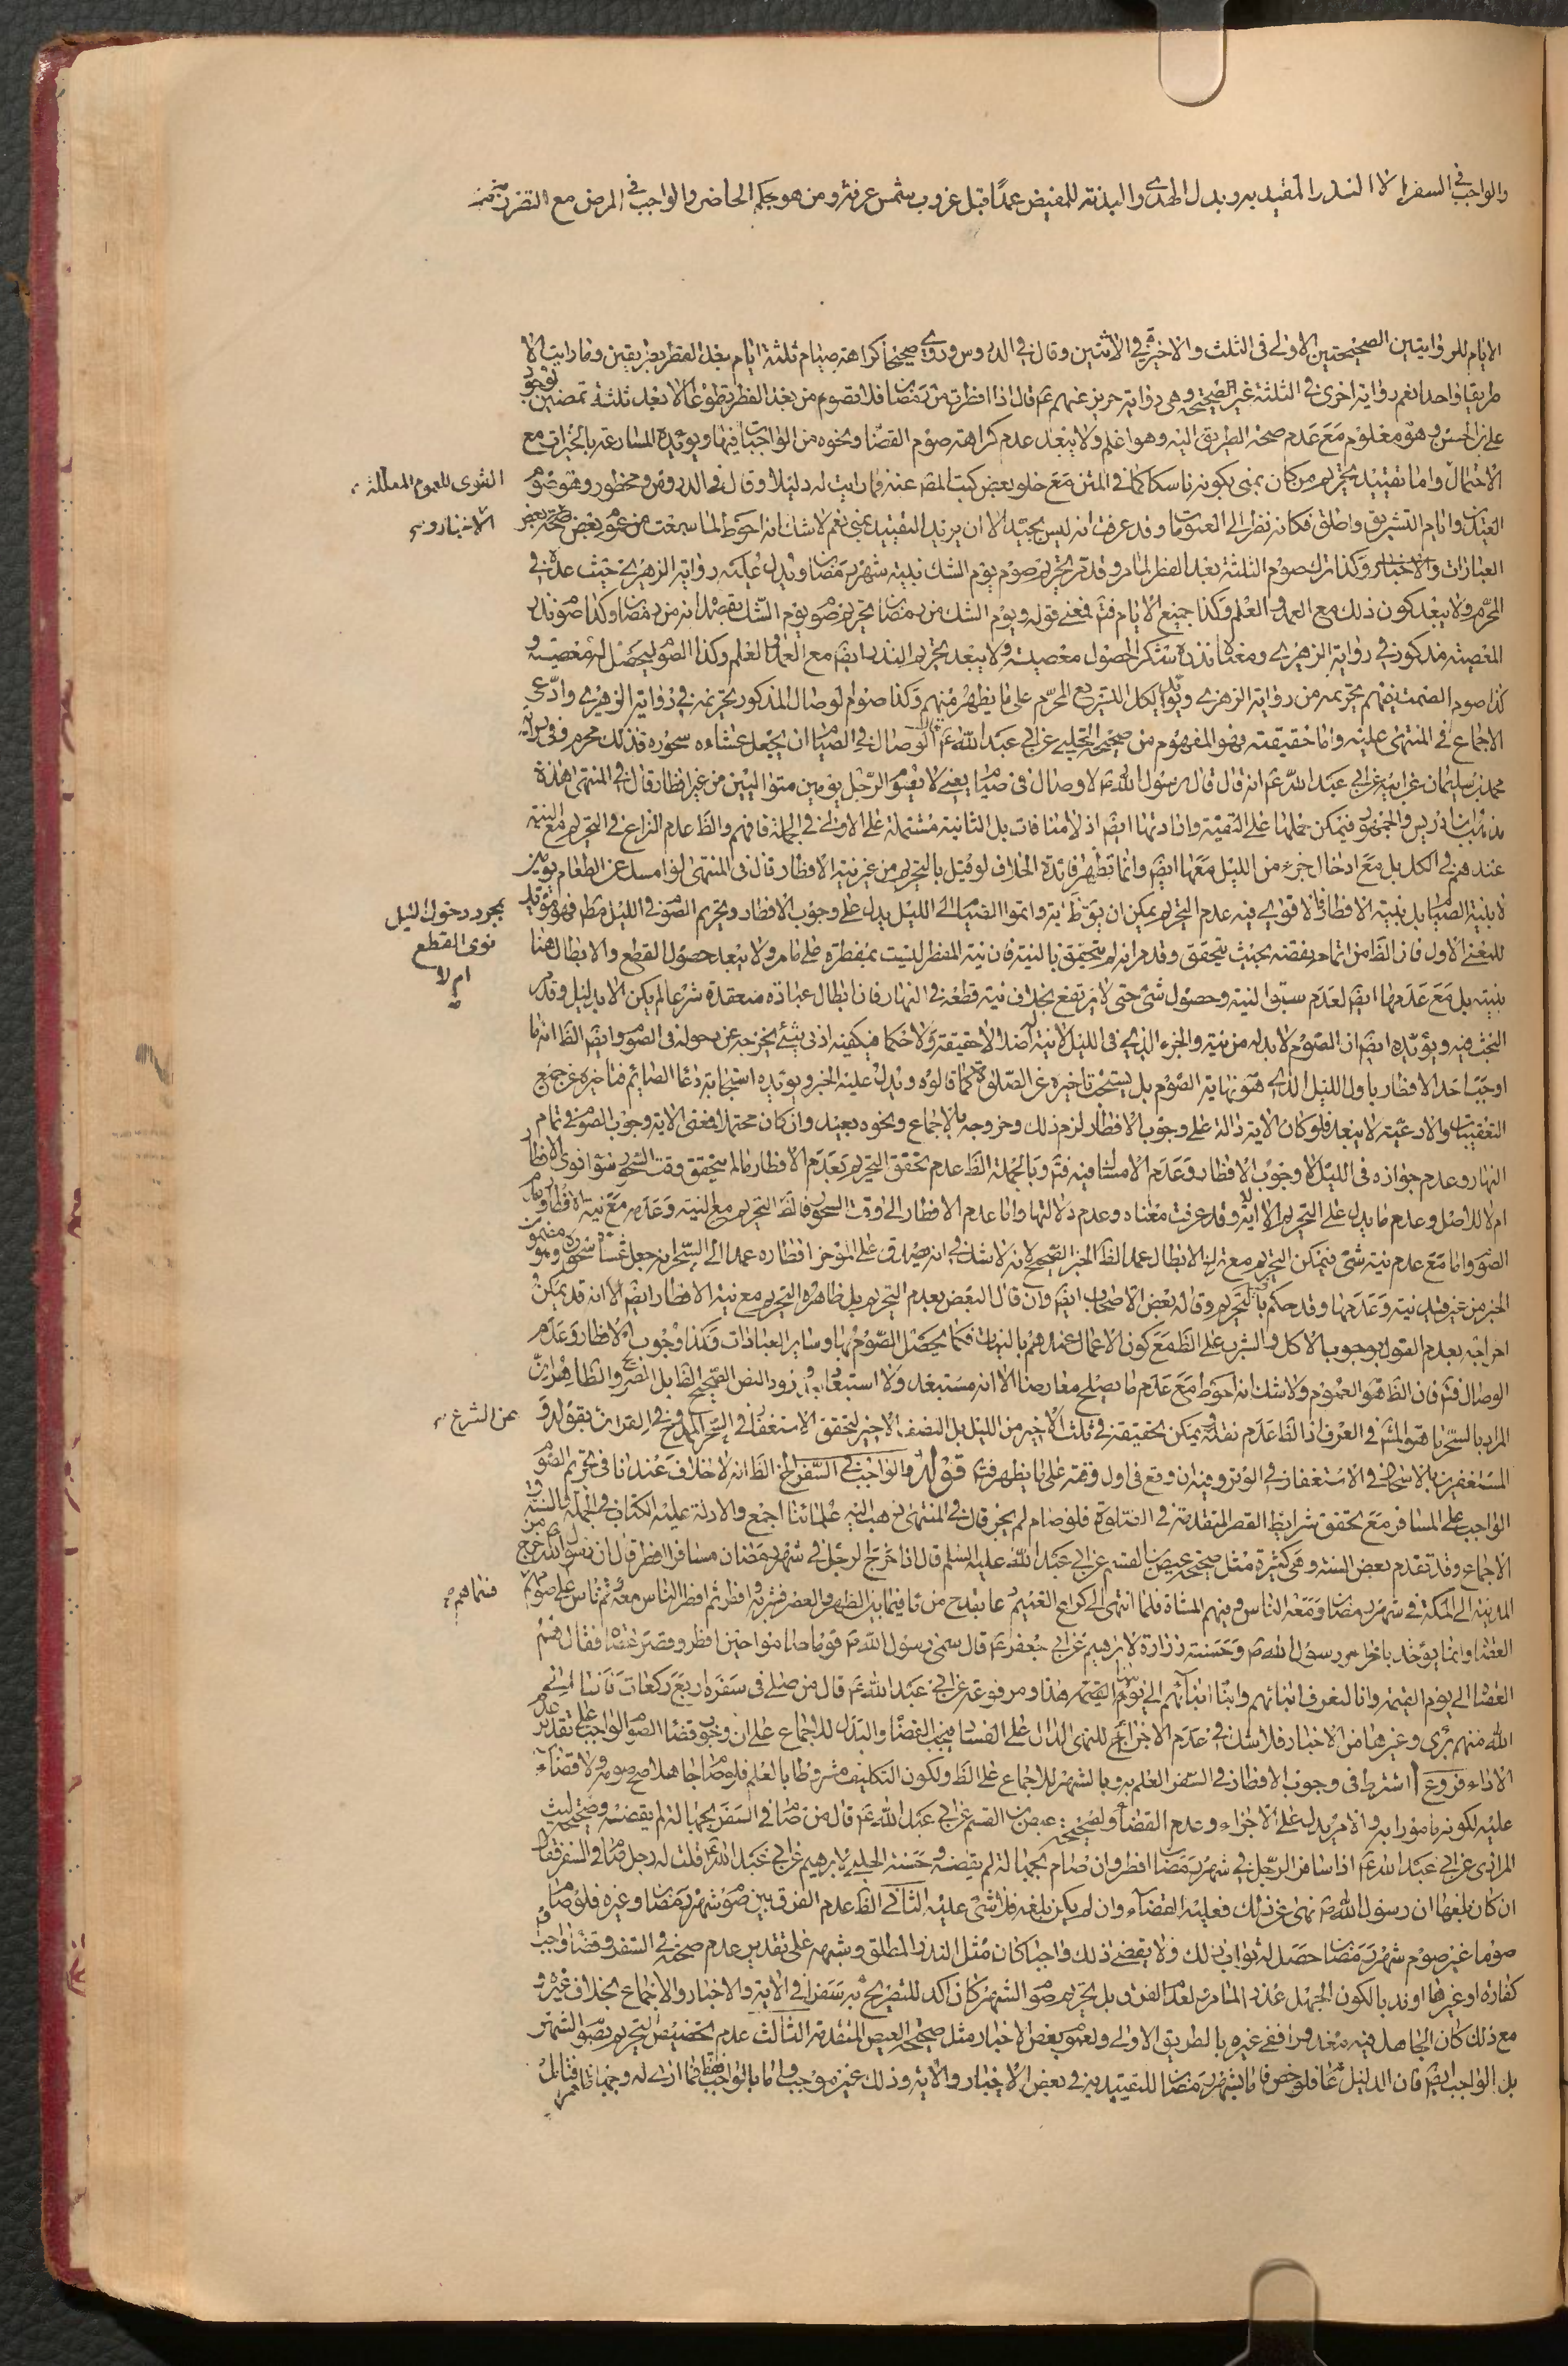 والواجب في السفر الا النذر المقيد به وبدل الهدى والبدنة للمفيض عمدًا قبل غروب شمس عرفة ومن هو بحكم الحاضر والواجب في المرض مع التضرر به
الايام للروايتين الصحيحتين الاولى في الثلث والاخيرة في الاثنين وقال في الدروس وروى صحيحا كراهة صيام ثلثة ايام بعد الفطر بطريقين وما رايت الا
طريقا واحدا نعم رواية اخرى في الثلثة غير الصحيحة وهي رواية حريز عنهم ع قال اذا افطرت من رمضان فلا تصومن بعد الفطر تطوعا الا بعد ثلثة تمضين
وهو معلوم مع عدم صحة الطريق اليه وهو اعلم ولا يبعد عدم كراهة صوم القضا ونحوه من الواجبات فيها ويؤيده المسارعة بالخيرات مع
الاحتمال واما تقييد تحريم من كان بمنى بكونه ناسكا كما في المتن مع خلو بعض كتب المصنف عنه فما رايت له دليلا وقال في الدروس ومحظور وهو صوم
العيدين وايام التشريق واطلق فكانه نظر الى العمومات وقد عرفت انه ليس بجيد الا ان يريد التقييد بمنى نعم لا شك انه احوط لما سمعت من عموم بعض
العبارات والاخبار وكذا ترك صوم الثلثة بعد الفطر لما مر وقد مر تحريم صوم يوم الشك بنية شهر رمضان ويدل عليه رواية الزهري حيث عده في
المحرم ولا يبعد كون ذلك مع العمد والعلم وكذا جميع الايام فتم فمعنى قوله ويوم الشك من رمضان تحريم صوم يوم الشك بقصد انه من رمضان وكذا صوم نذر
المعصية مذكور في رواية الزهري ومعناه نذره شكر الحصول معصية ولا يبعد تحريم النذر ايضا مع العمد والعلم وكذا الصوم ليحصل له معصية و
كذا صوم الصمت يفهم تحريمه من رواية الزهري ويؤيد الكل التشريع المحرم على ما يظهر منهم وكذا صوم الوصال المذكور تحريمه في رواية الزهري وادعى
الاجماع في المنتهى عليه واما حقيقته فهو المفهوم من صحيحة الحلبي عن ابي عبد الله ع قال الوصال في الصيام ان يجعل عشاءه سحوره فذلك محرم وفي رواية
محمد بن سليمان عن ابيه عن ابي عبد الله ع انه قال قال رسول الله ص لا وصال في صيام يعني لا يصوم الرجل يومين متواليين من غير افطار قال في المنتهى هذه
مذهب ابن ادريس والجمهور فيمكن حملها على التقية وارادتها ايضا اذ لا منافات بل الثانية مشتملة على الاولى في الجملة فافهم والظ عدم النزاع في التحريم مع النية
عندهم في الكل بل مع ادخال جزء من الليل معها ايضا وانما تظهر فائدة الخلاف لو قيل بالتحريم من غير نية الافطار قال في المنتهى لو امسك عن الطعام يومين
لا بنية الصيام بل بنية الافطار فالاقوى فيه عدم التحريم يمكن ان يق ظ اية واتموا الصيام الى الليل يدل على وجوب الافطار وتحريم الصوم في الليل مط فهو مؤيد
للمعنى الاول
بنيته بل مع عدمها ايضا لعدم سبق النية وحصول شئ حتى لا يرتفع بخلاف نية قطعه في النهار فان ابطال عبادة منعقدة شرعا لم يكن الا بدليل وقد مر
البحث فيه ويؤيده ايضا ان الصوم لا بد له من نية والجزء الذي في الليل لا نية له اصلا لا حقيقة ولا حكما فيكفيه ادنى شئ يخرجه عن دخوله في الصوم وايضا الظ انه ما
اوجب احد الافطار باول الليل الذي هو نهاية الصوم بل يستحب تاخيره عن الصلوة كما قالوه ويدل عليه الخبر ويؤيده استجابة دعا الصائم فتاخيره عن جميع
التعقيبات والادعية لا يبعد فلو كان الاية دالة على وجوب الافطار لزم ذلك وخروجه بالاجماع ونحوه بعيد وان كان محتملا فمعنى الاية وجوب الصوم في تمام
النهار وعدم جوازه في الليل لا وجوب الافطار وعدم الامساك فيه فتم وبالجملة الظ عدم تحقق التحريم بعدم الافطار ما لم يتحقق وقت السحور سواء نوى الافطار
ام لا للاصل وعدم ما يدل على التحريم الا الاية وقد عرفت معناه وعدم دلالتها واما عدم الافطار الى وقت السحور فالظ التحريم مع النية وعدمه مع نية الافطار
الصوم واما مع عدم نية شئ فيمكن التحريم
الخبر من غير قيد نية وعدمها وقد حكم بالتحريم وقاله بعض الاصحاب ايضا وان قال البعض بعدم التحريم بل ظاهره التحريم مع نية الافطار ايضا الا انه قد يمكن
اخراجه بعدم القول بوجوب الاكل والشرب على الظ مع كون الاعمال عندهم بالنيات فكما يحصل الصوم بها وساير العبادات فكذا وجوب الافطار وعدم
الوصال فتم فان الظ هو العموم ولا شك انه احوط مع عدم ما يصلح معارضا الا انه مستبعد ولا استبعاد بعد ورود النص الصحيح الظ بل الصريح والظاهر ان
المراد بالسحر ما هو المشهور في العرف اذ الظ عدم نقله ويمكن تحقيقه في ثلث الاخير من الليل بل النصف الاخير لتحقق الاستغفار في السحر الممدوح في القران بقوله و
المستغفرين بالاسحار في الاستغفار في الوتر وفيه ان وقع في اول وقته على ما يظهر فتم قوله والواجب في السفر الخ الظ انه لا خلاف عندنا في تحريم الصوم
الواجب على المسافر مع تحقق شرايط القصر المتقدمة في الصلوة فلو صام لم يجز قال في المنتهى ذهب اليه علمائنا اجمع والادلة عليه الكتاب في الجملة والسنة و
الاجماع وقد تقدم بعض السنة وهي كثيرة مثل صحيحة عيص بن القسم عن ابي عبد الله عليه السلم قال اذا خرج الرجل في شهر رمضان مسافرا افطر قال ان رسول الله ص خرج من
المدينة الى المكة في شهر رمضان ومعه الناس وفيهم المشاة فلما انتهى الى كراع الغميم دعا بقدح من ماء فيما بين الظهر والعصر فشربه وافطر ثم افطر الناس معه وثم ناس على صومهم
العصاة وانما يؤخذ باخر امر رسول الله ص وحسنة زرارة لابرهيم عن ابي جعفر ع قال سمى رسول الله ص قوما صاموا حين افطر وقصر عصاة فقال هم
العصاة الى يوم القيمة وانا لنعرف ابنائهم وابناء ابنائهم الى يومنا هذا ومرفوعة عن ابي عبد الله ع قال من صلى في سفره اربع ركعات فانا الى
الله منهم برئ وغيرها من الاخبار فلا شك في عدم الاجزاء للنهي الدال على الفساد فيجب القضا والبدل للاجماع على ان وجوب قضاء الصوم الواجب على تقدير عدم
الاداء فروع ا اشترط في وجوب الافطار في السفر العلم به وبالشهر للاجماع على الظ ولكون التكليف مشروطا بالعلم فلو صام جاهلا صح صومه ولا قضاء
عليه لكونه مامورا به والامر يدل على الاجزاء وعدم القضاء ولصحيحة عيص بن القسم عن ابي عبد الله ع قال من صام في السفر بجهالة لم يقضه وصحيحة ليث
المرادي عن ابي عبد الله ع اذا سافر الرجل في شهر رمضان افطر وان صام بجهالة لم يقضه وحسنة الحلبي لابرهيم عن ابي عبد الله ع قلت له رجل صام في السفر فقال
ان كان بلغه ان رسول الله ص نهى عن ذلك فعليه القضاء وان لم يكن بلغه فلا شئ عليه الثاني الظ عدم الفرق بين صوم شهر رمضان وغيره فلو صام
صوما غير صوم شهر رمضان حصل له ثواب ذلك ولا يقضى ذلك واجبا كان مثل النذر المطلق وشبهه على تقدير عدم صحته في السفر وقضاء واجب
كفارة او غيرها او ندبا لكون الجهل عذرا لما مر ولعدم الفرق بل تحريم صوم الشهر كان اكد للتصريح به سفرا في الاية والاخبار والاجماع بخلاف غيره و
مع ذلك كان الجاهل فيه معذورا ففي غيره بالطريق الاولى ولعموم بعض الاخبار مثل صحيحة العيص المتقدمة الثالث عدم تخصيص التحريم بصوم الشهر
بل الواجب ايضا فان الدليل عام فلو خص فاما بشهر رمضان للتقييد به في بعض الاخبار والاية وذلك غير موجب واما بالواجب فما ارى له وجها ظاهرا فتامل
الاخبار و
بمجرد دخول الليل
نوى القطع
ام لا
عن الشرع